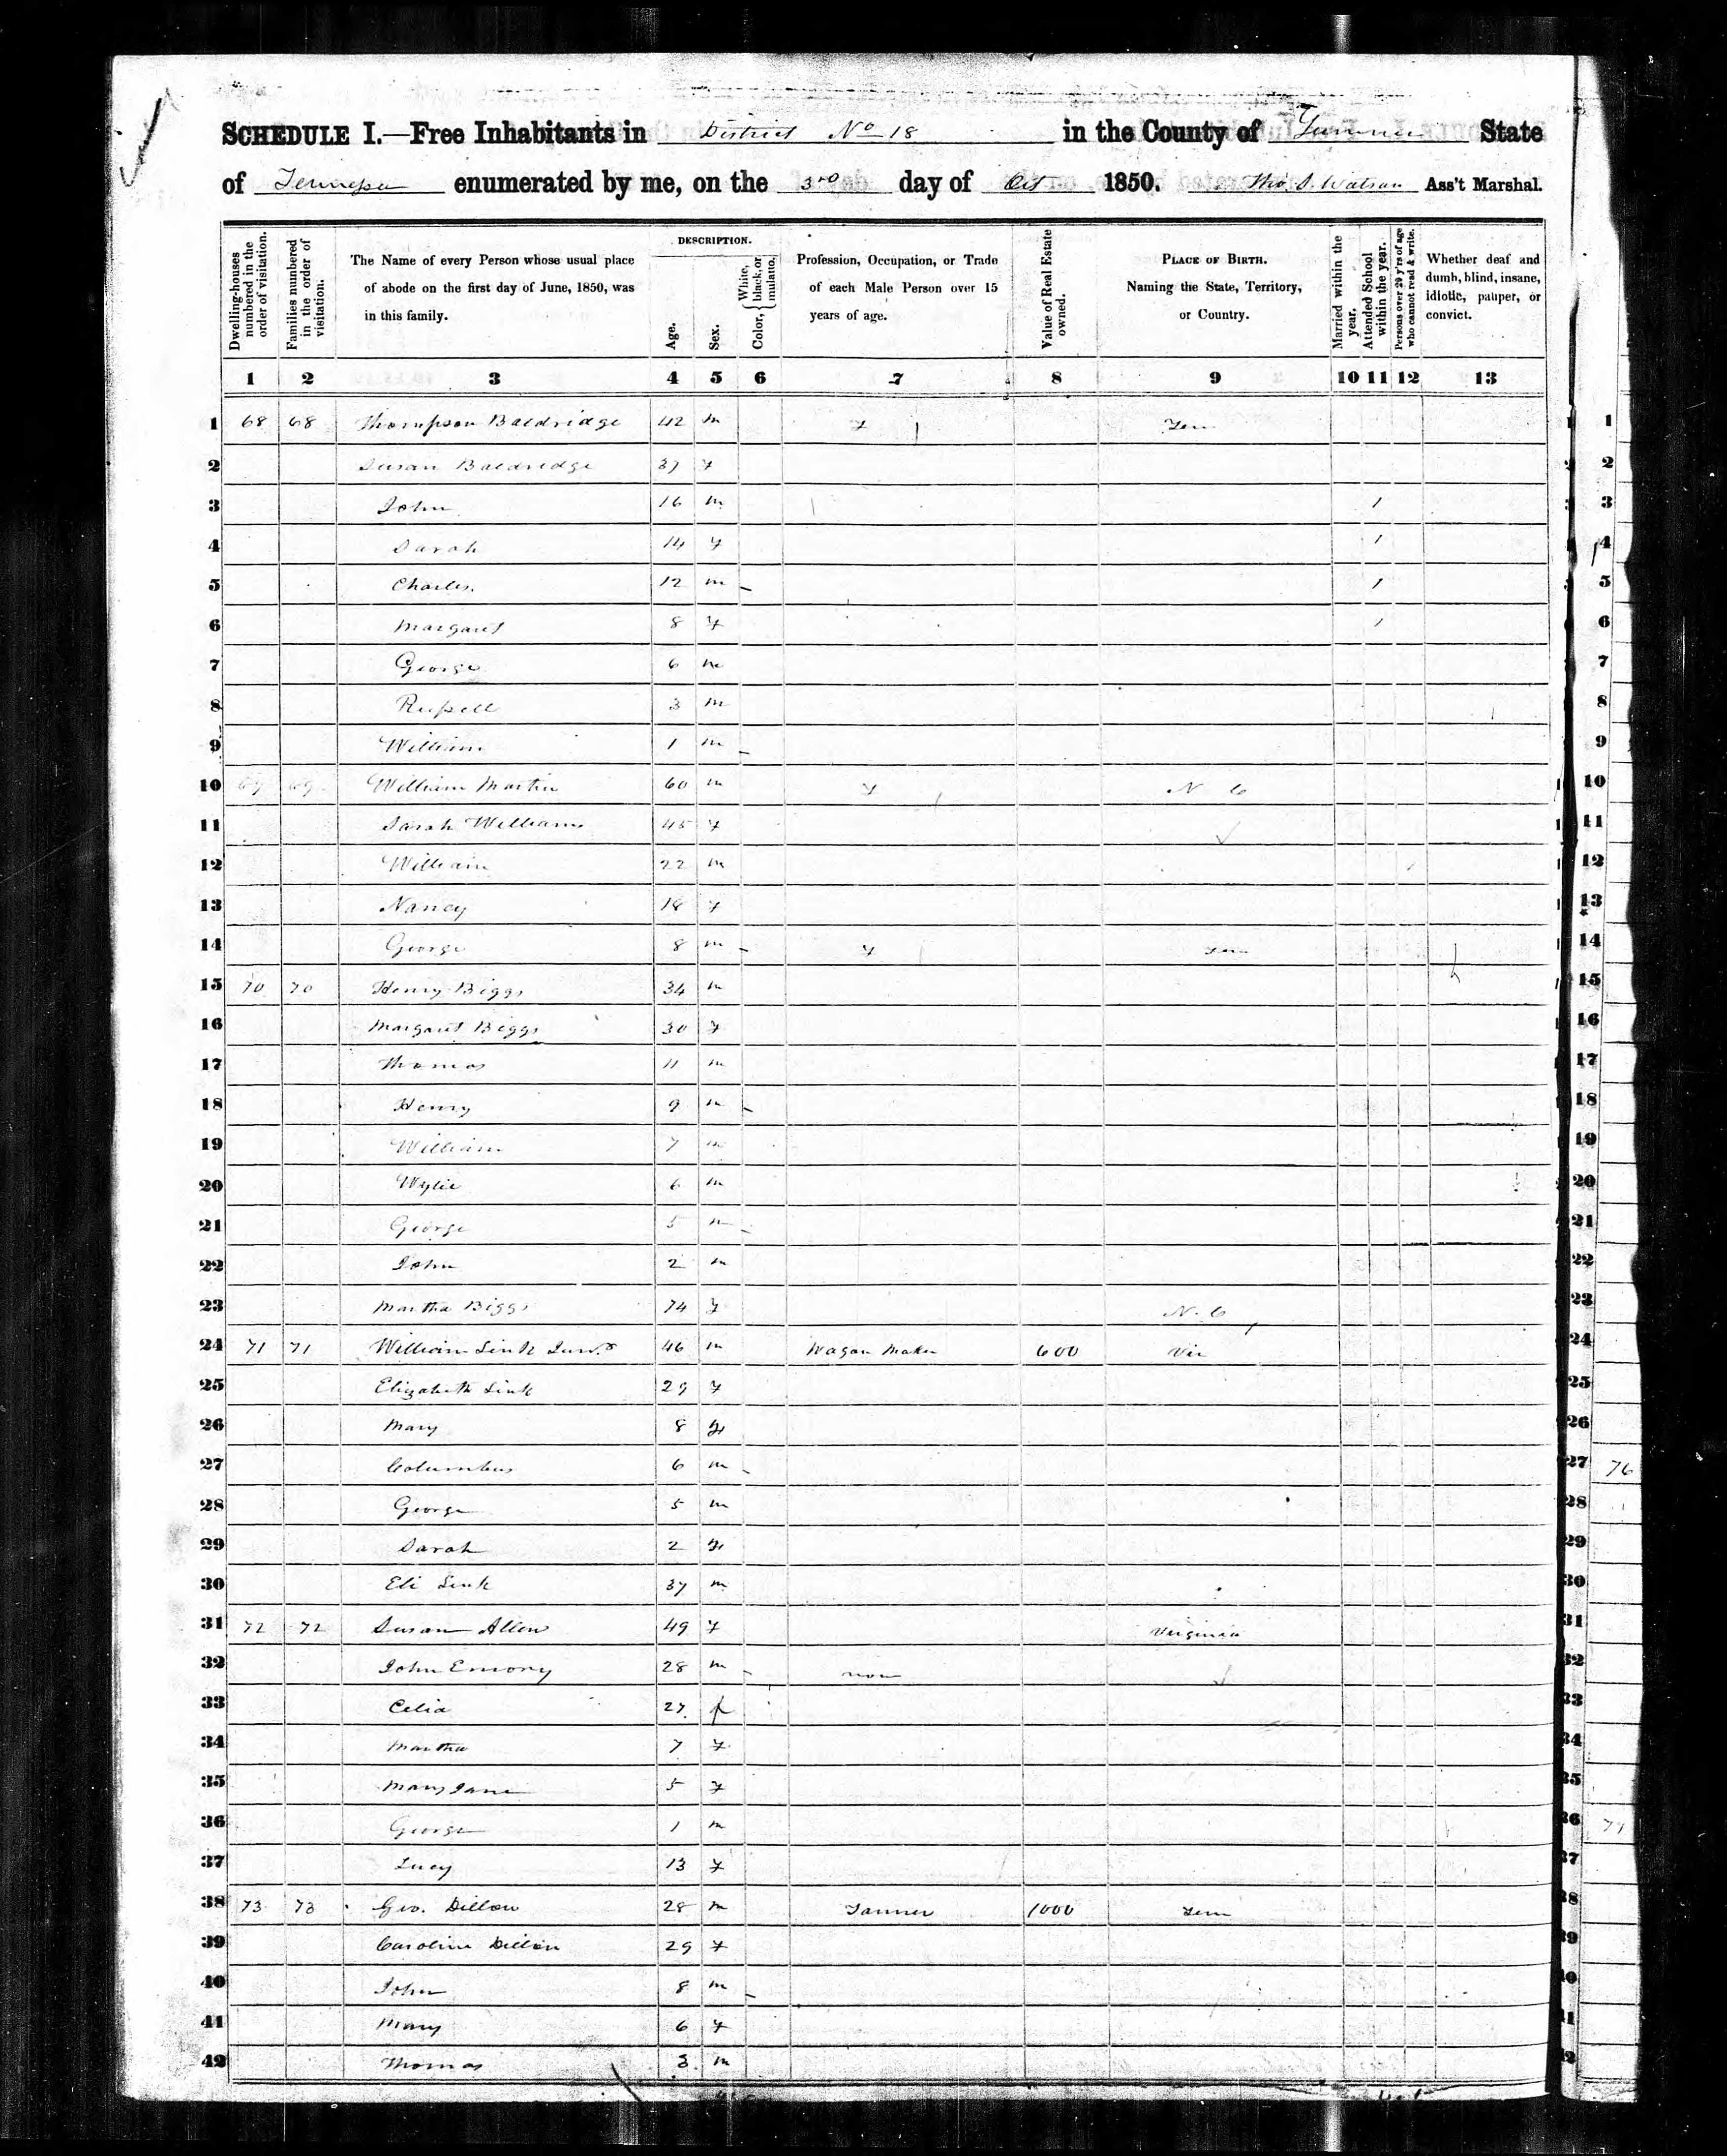 SCHEDULE I.—Free Inhabitants in District No 18 in the County of Sumner State
of Tennessee enumerated by me, on the 3rd day of Oct 1850. Tho. S. Watson Ass't Marshal.
Dwelling-houses numbered in the order of visitation.
Families numbered in the order of visitation.
The Name of every Person whose usual place of abode on the first day of June, 1850, was in this family.
DESCRIPTION.
Age.
Sex.
Color, { White, black, or mulatto.
Profession, Occupation, or Trade of each Male Person over 15 years of age.
Value of Real Estate owned.
PLACE OF BIRTH. Naming the State, Territory, or Country.
Married within the year.
Attended School within the year.
Persons over 20 y'rs of age who cannot read & write.
Whether deaf and dumb, blind, insane, idiotic, pauper, or convict.
1 2 3 4 5 6 7 8 9 10 11 12 13
1 68 68 Thompson Baldridge 42 m F Ten 1
2 Susan Baldridge 37 F 2
3 John 16 m 1 3
4 Sarah 14 F 1 4
5 Charles 12 m 1 5
6 Margaret 8 F 1 6
7 George 6 m 7
8 Russell 3 m 8
9 William 1 m 9
10 69 69 William Martin 60 m F N C 10
11 Sarah Williams 45 F 11
12 William 22 m 12
13 Nancy 18 F 13
14 George 8 m F Ten 14
15 70 70 Henry Biggs 34 m 15
16 Margaret Biggs 30 F 16
17 Thomas 11 m 17
18 Henry 9 m 18
19 William 7 m 19
20 Wylie 6 m 20
21 George 5 m 21
22 John 2 m 22
23 Martha Biggs 74 F N. C 23
24 71 71 William Link Junr 46 m Wagon Maker 600 Vir 24
25 Elizabeth Link 29 F 25
26 Mary 8 F 26
27 Columbus 6 m 27 76
28 George 5 m 28
29 Sarah 2 F 29
30 Eli Link 37 m 30
31 72 72 Susan Allen 49 F Virginia 31
32 John Emory 28 m non 32
33 Celia 27 f 33
34 Martha 7 F 34
35 Mary Jane 5 F 35
36 George 1 m 36 77
37 Lucy 13 F 37
38 73 73 Geo. Dillon 28 m Tanner 1000 Ten 38
39 Caroline Dillon 29 F 39
40 John 8 m 40
41 Mary 6 F 41
42 Thomas 3 m 42